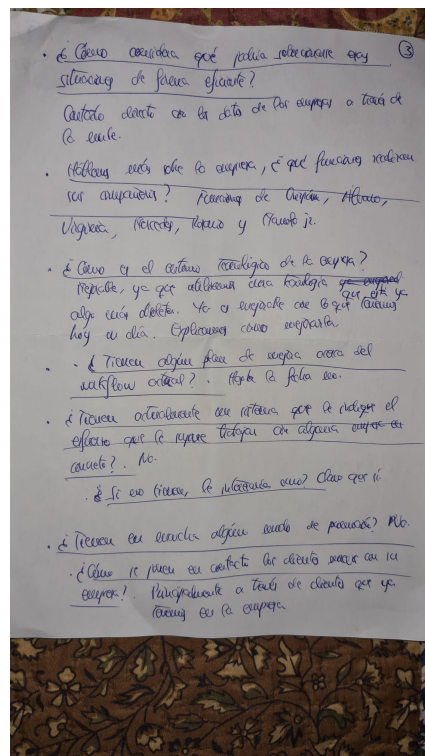 ③
• ¿Cómo considera qué podría solucionarse esas
situaciones de forma eficiente?
Contacto directo con los datos de las empresas a través de
la nube.
• Háblenos más sobre la empresa, ¿qué funciones realizan
sus compañeros? Funciones de Cristian, Álvaro,
Mercedes, Rosario y Manolo jr.
• ¿Cómo es el entorno tecnológico de la empresa?
Mejorable, ya que utilizamos una tecnología que está ya
algo más obsoleta. Ya es mejorable con lo que tenemos
hoy en día. Explicamos cómo mejorarla
• ¿Tienen algún plan de mejora acerca del
workflow actual? Hasta la fecha no.
• ¿Tienen actualmente un sistema que le indique el
esfuerzo que le supone trabajar con alguna empresa en
concreto? No.
• ¿Si no tienen, le interesaría uno? Claro que sí.
• ¿Tienen en marcha algún modo de promoción? No.
• ¿Cómo se ponen en contacto los clientes nuevos con su
empresa? Principalmente a través de clientes que ya
tenemos en la empresa